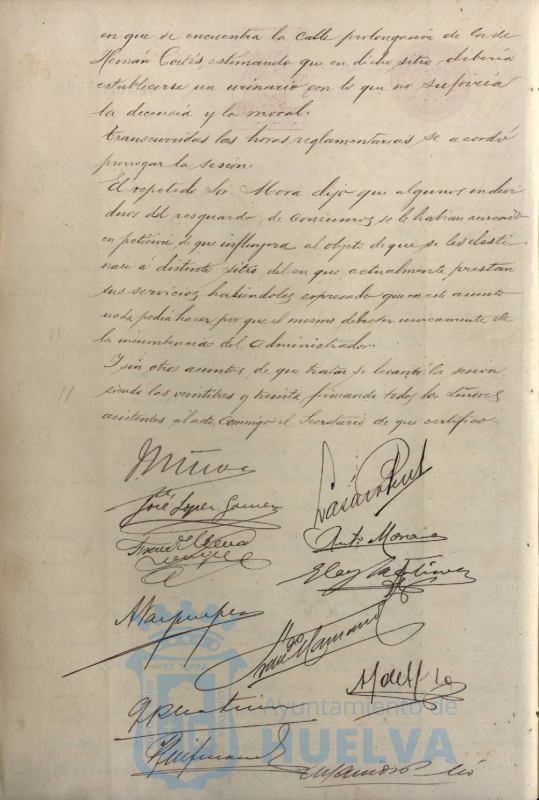 en que se encuentra la calle prolongación de la de
Hernán Cortés, estimando que en dicho sitio, debería
establecerse un urinario con lo que no sufriría
la decencia y la moral.
Transcurridas las horas reglamentarias se acordó
prorrogar la sesión.
El repetido Sor. Mora dijo que algunos indivi
duos del resguardo de Consumos, se le habían acercado
en petición de que influyera al objeto de que se les desti
nara á distinto sitio del en que actualmente prestan
sus servicios, habiéndoles expresado que en este asunto
nada podía hacer por que el mismo debe ser unicamente de
la incumbencia del Administrador.
Y sin otros asuntos, de que tratar se levantó la sesión
siendo las veintitres y treinta, firmando todos los Señores
asistentes al acto, conmigo el Secretario de que certifico.
José Lopez Gomez
Antº Moreno
Eloy Martínez
Ayuntamiento de
HUELVA